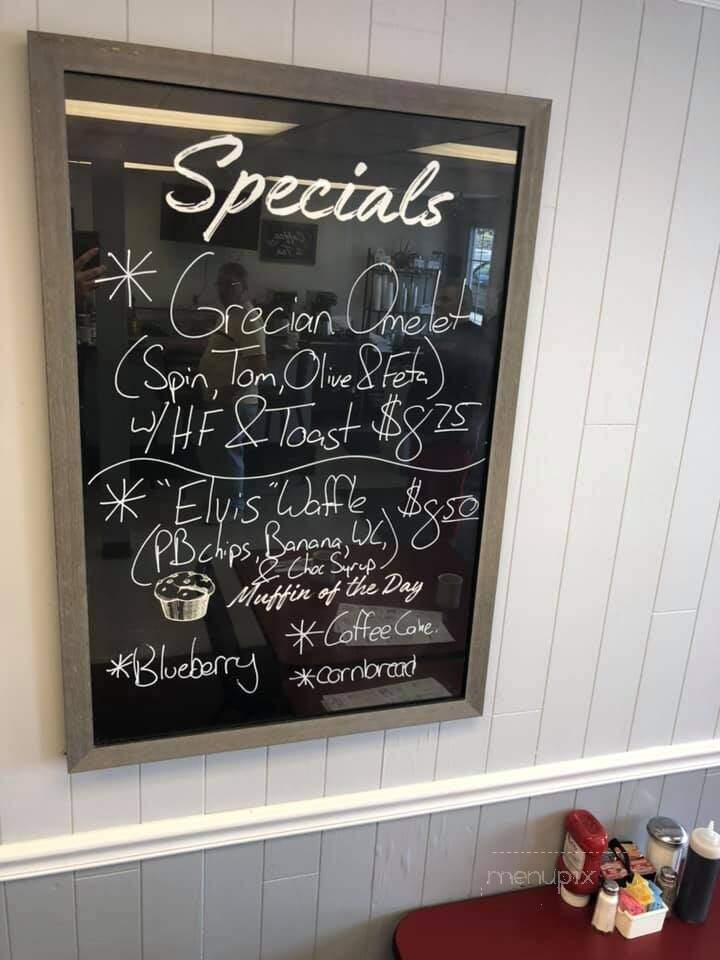 Specials
* Grecian Omelet
(Spin, Tom, Olive & Feta)
w/ HF & Toast $8.75
* "Elvis" Waffle $8.50
(PB chips, Banana, WC,
& Choc Syrup)
Muffin of the Day
* Coffee Cake.
* Blueberry
* cornbread
menupix